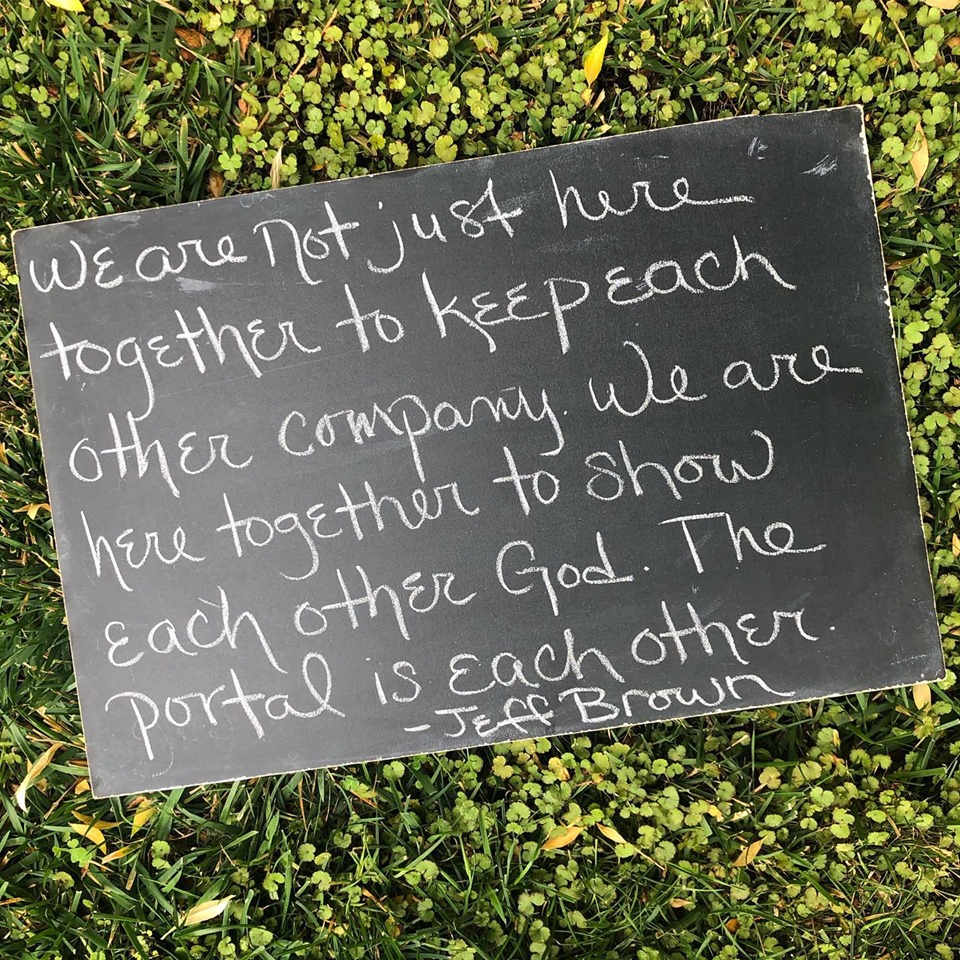 We are not just here
together to keep each
other company. We are
here together to show
each other God. The
portal is each other.
-Jeff Brown